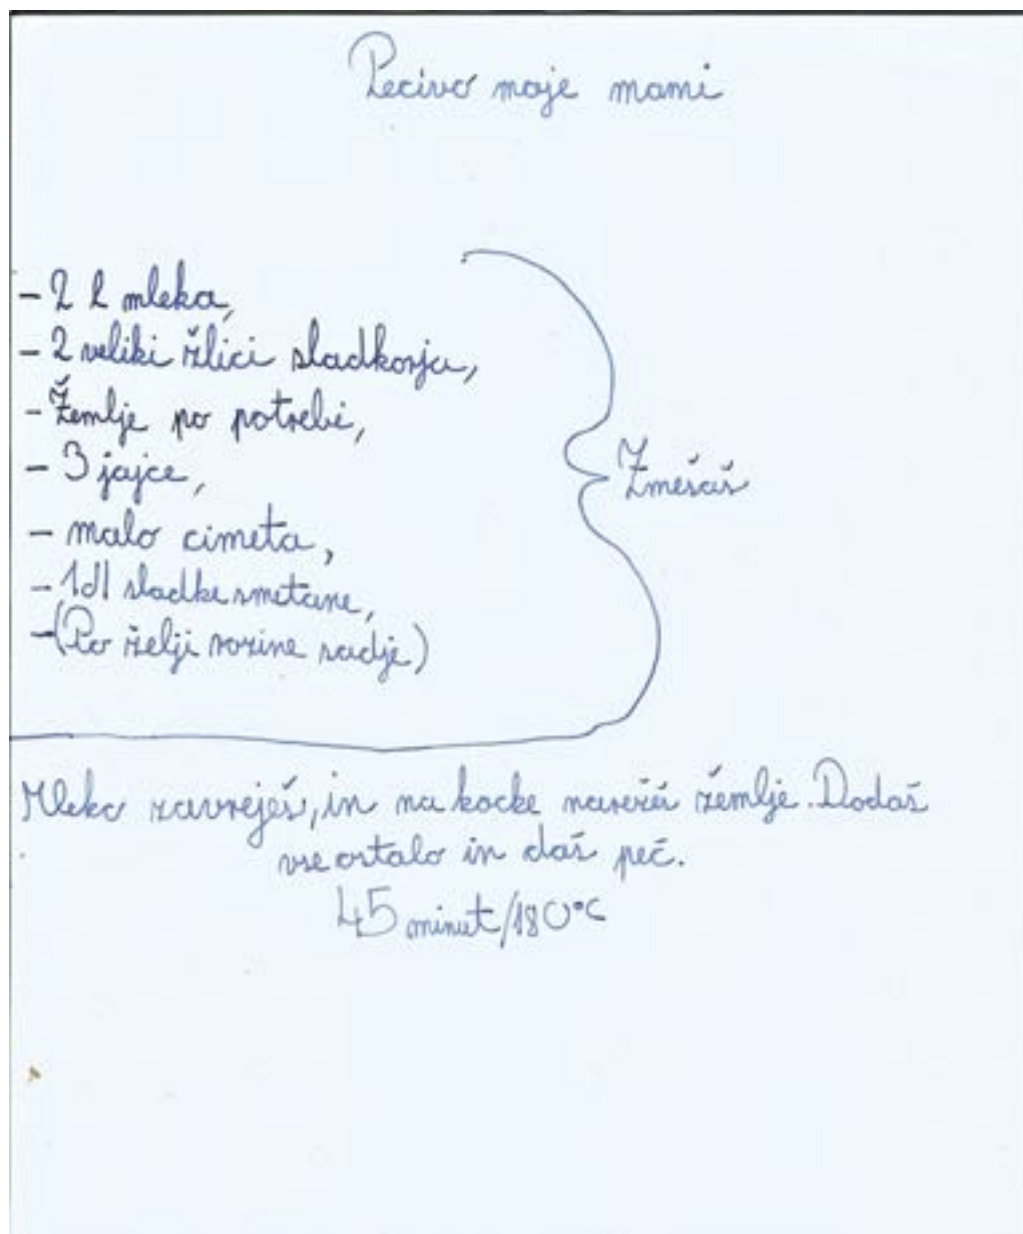 Pecivo moje mami
- 2 l mleka,
- 2 veliki žlici sladkorja,
- Žemlje po potrebi,
- 3 jajce,
- malo cimeta,
- 1dl sladke smetane,
- (Po želji rozine sadje)
Zmešaš
Mleko zavreješ, in na kocke narežeš žemlje. Dodaš
vse ostalo in daš peč.
45 minut/180°C